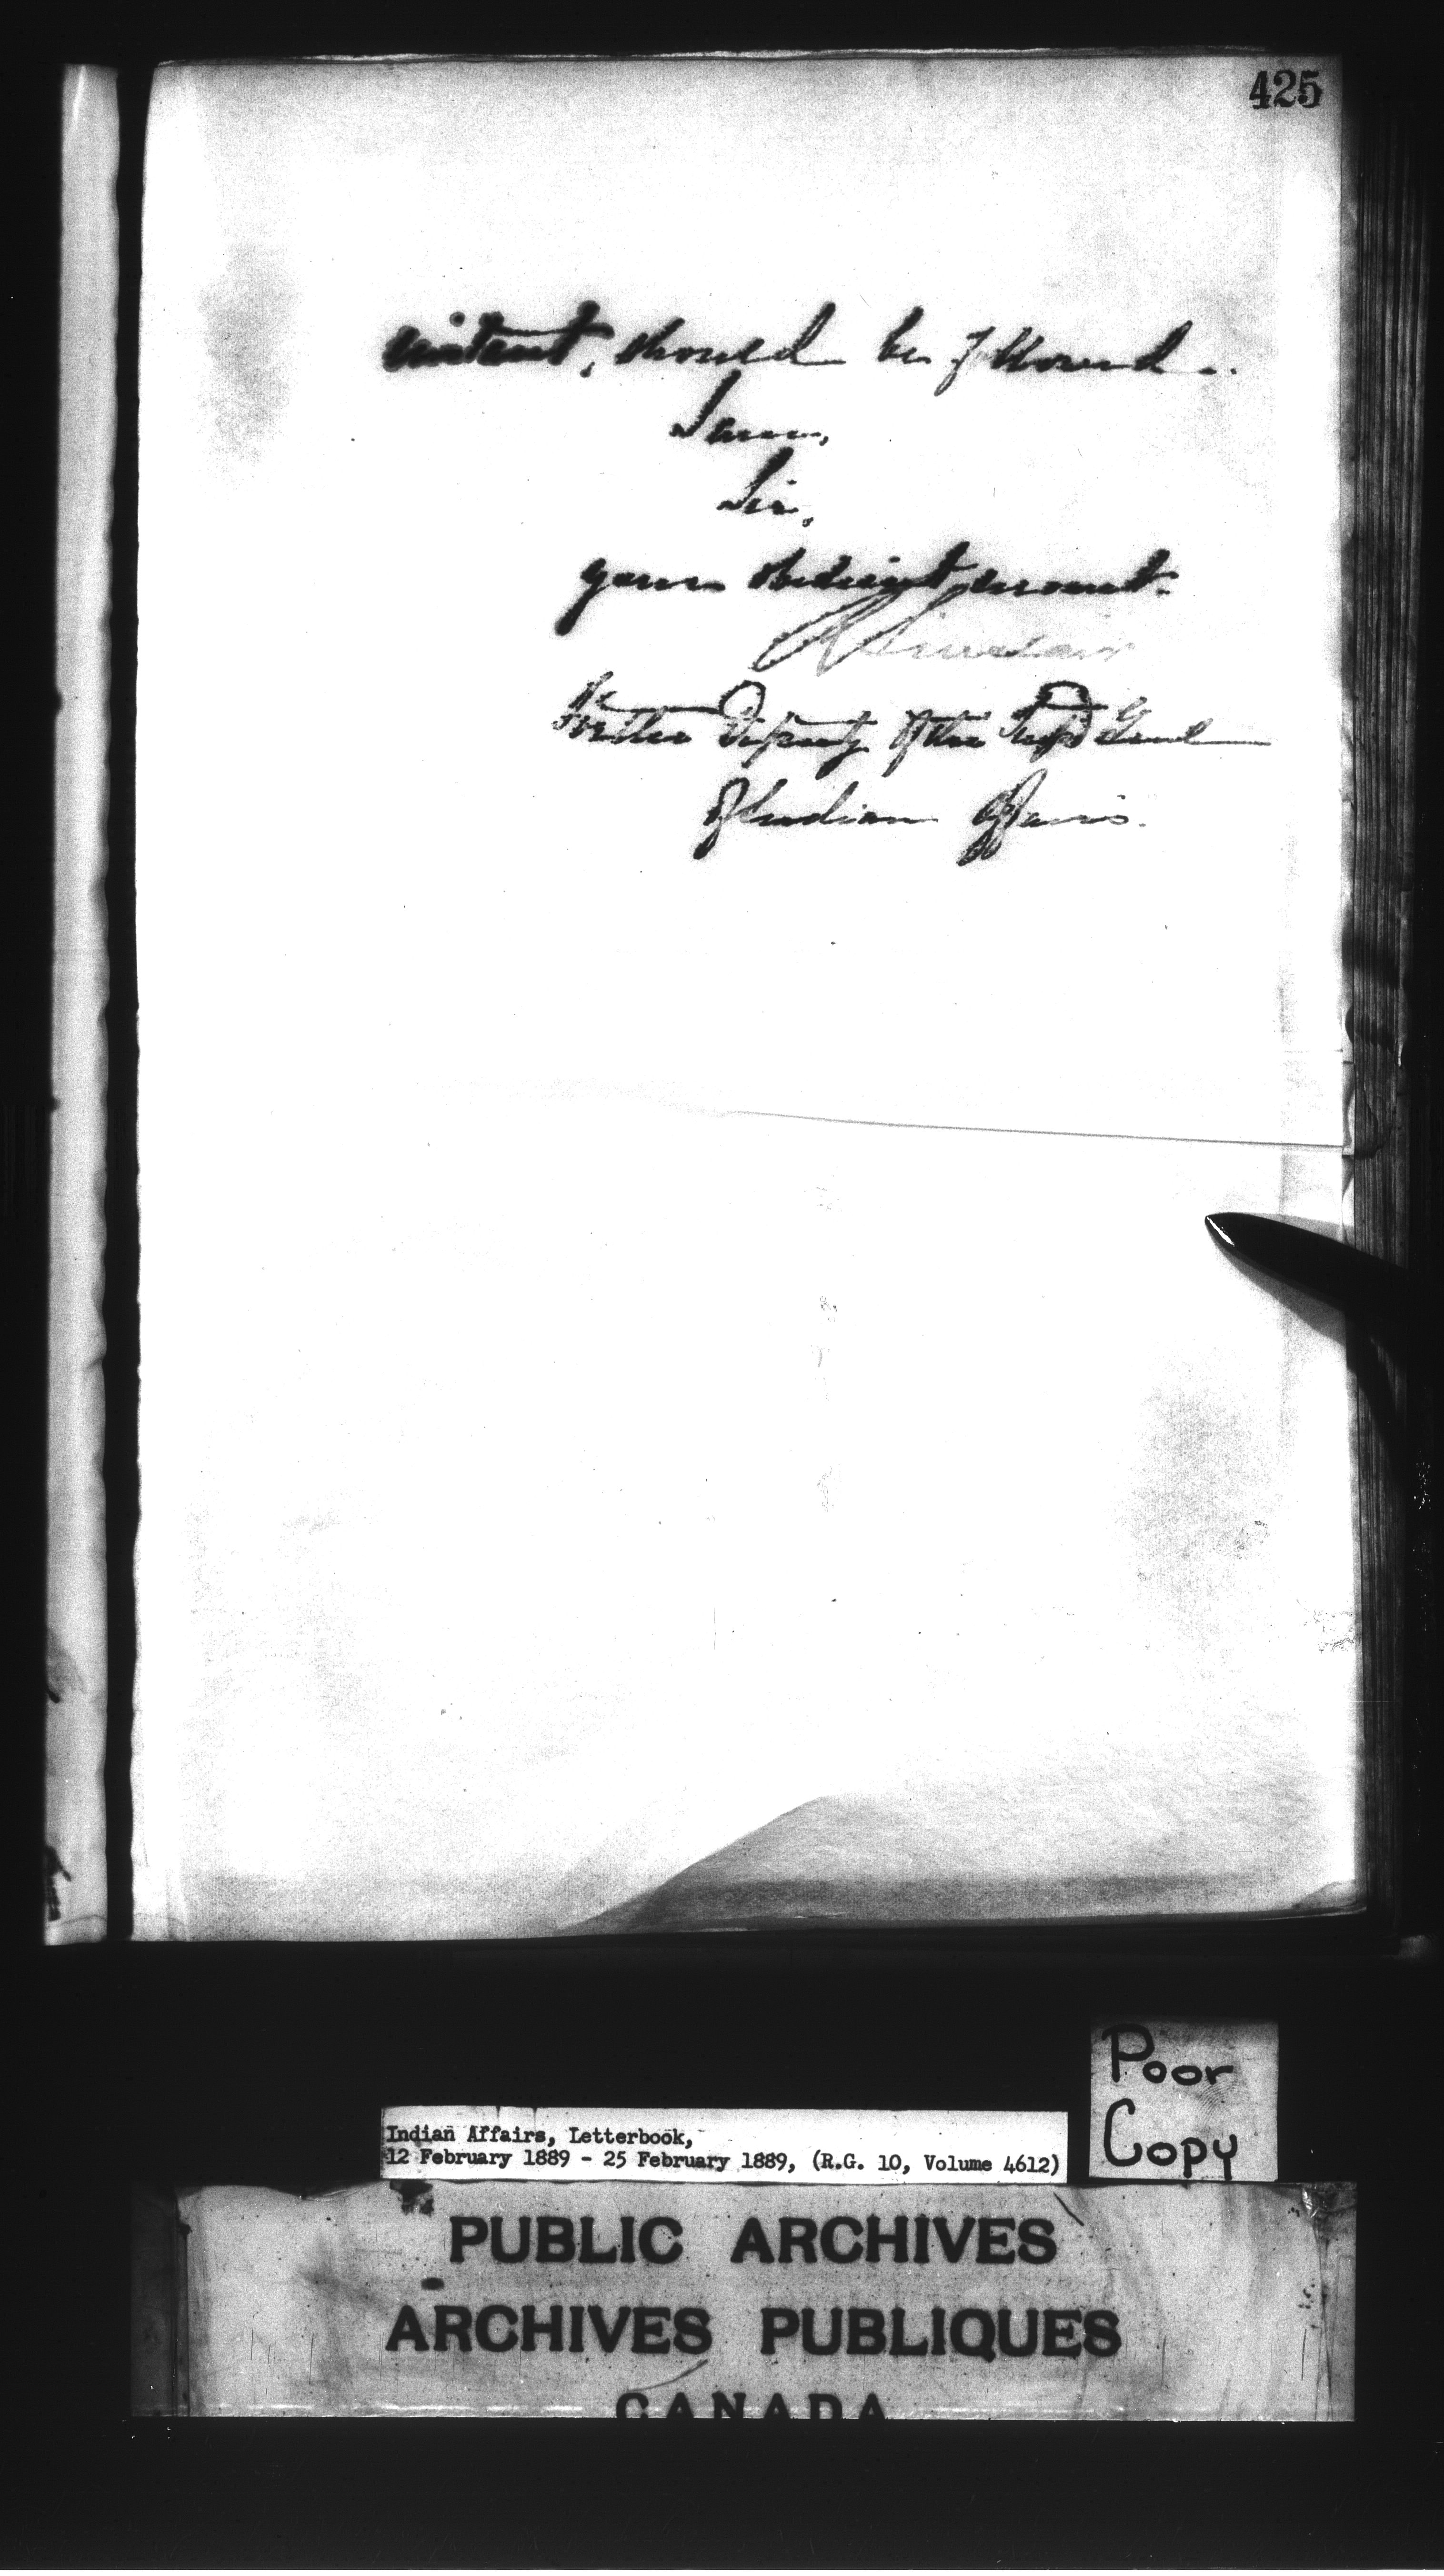 425
should be followed.
I am,
Sir,
Your obedient servant.
R Sinclair
For the Deputy of the Supt Genl
of Indian Affairs.
Poor
Copy
Indian Affairs, Letterbook,
12 February 1889 - 25 February 1889, (R.G. 10, Volume 4612)
PUBLIC ARCHIVES
ARCHIVES PUBLIQUES
CANADA